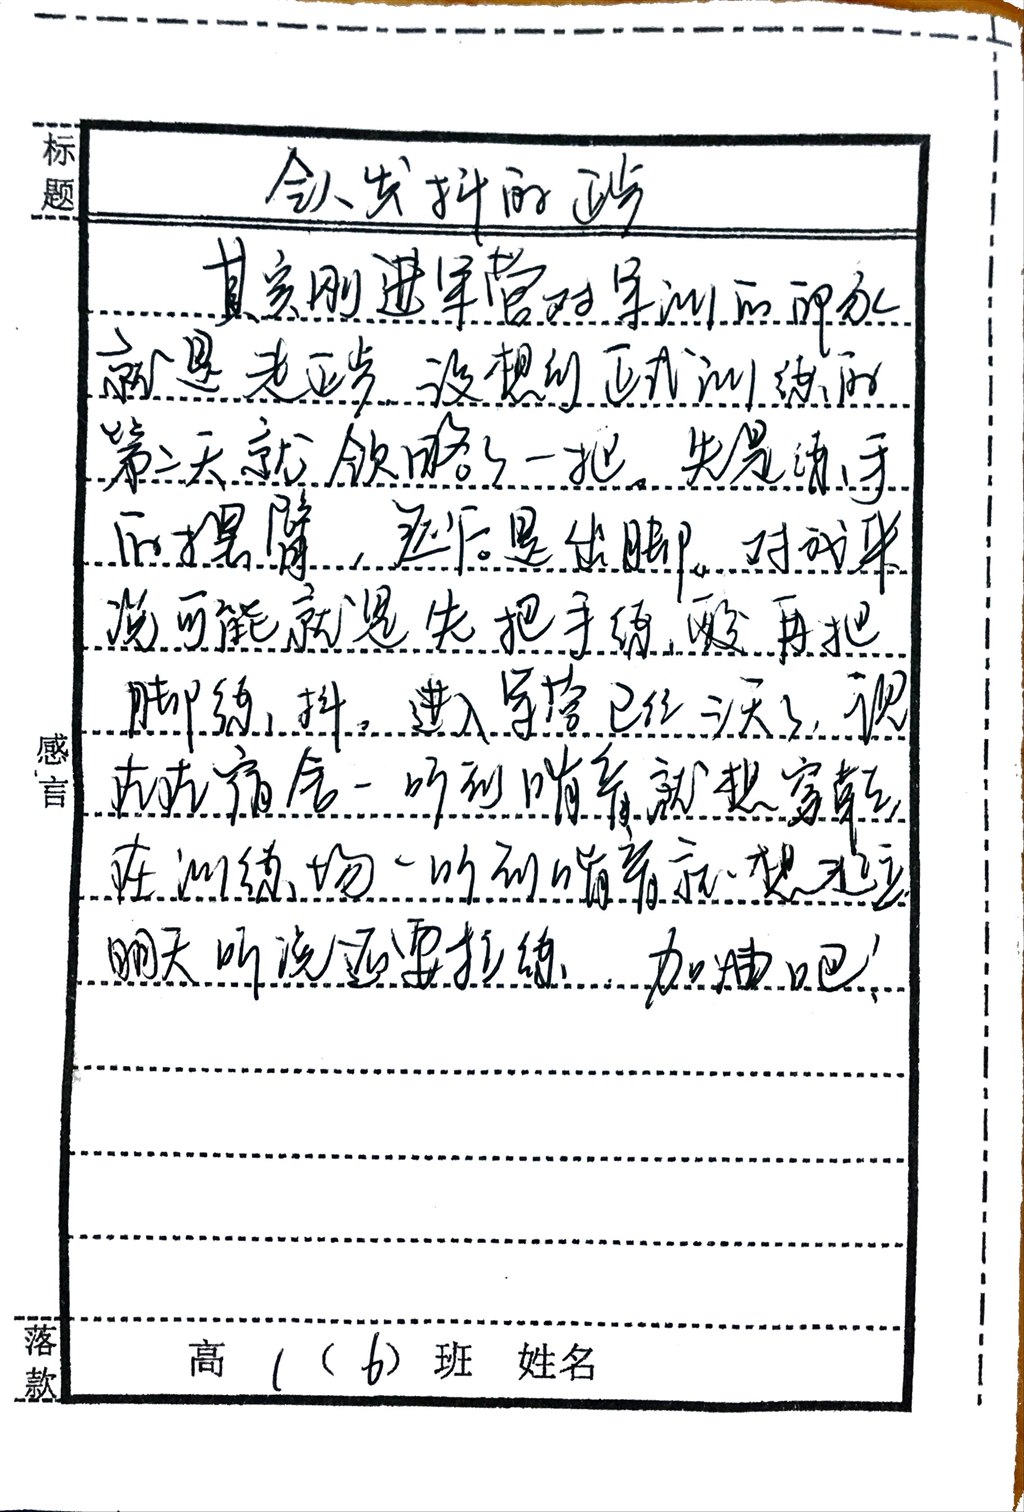 标题
令人发抖的正步
其实刚进军营对军训的印象
就是走正步。没想到正式训练的
第二天就领略了一把。先是练手
的摆臂，然后是出脚。对我来
说可能就是先把手练酸再把
脚练抖。进入军营已经三天了，
在宿舍一听到哨音就想穿鞋，
在训练场一听到哨音就想起立。
明天听说还要拉练。加油吧！
感言
落款
高1（6）班 姓名